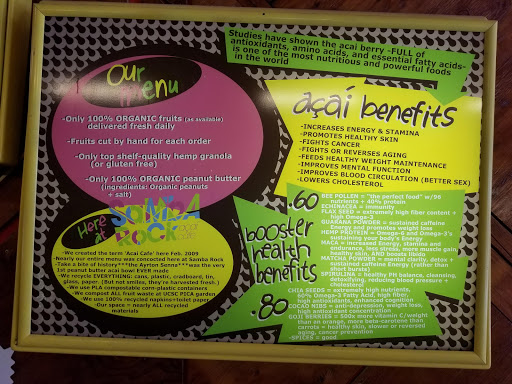 Our
menu
-Only 100% ORGANIC fruits (as available)
delivered fresh daily
-Fruits cut by hand for each order
-Only top shelf-quality hemp granola
(or gluten free)
-Only 100% ORGANIC peanut butter
(ingredients: Organic peanuts
+ salt)
Studies have shown the acai berry -FULL of
antioxidants, amino acids, and essential fatty acids-
is one of the most nutritious and powerful foods
in the world
açaí benefits
-INCREASES ENERGY & STAMINA
-PROMOTES HEALTHY SKIN
-FIGHTS CANCER
-FIGHTS OR REVERSES AGING
-FEEDS HEALTHY WEIGHT MAINTENANCE
-IMPROVES MENTAL FUNCTION
-IMPROVES BLOOD CIRCULATION (BETTER SEX)
-LOWERS CHOLESTEROL
Here at
SAMBA
ROCK
-We created the term 'Acai Cafe' here Feb. 2009
-Nearly our entire menu was conceived here at Samba Rock
-Take a bite of history **The Ayrton Senna** was the very
1st peanut butter acai bowl EVER made
-We recycle EVERYTHING: cans, plastic, cardboard, tin,
glass, paper. (But not smiles, they're harvested fresh.)
-We use PLA compostable corn-plastic containers
-We compost ALL fruit waste at UCSC PICA garden
-We use 100% recycled napkins+toilet paper
Our space = nearly ALL-recycled
materials
.60
booster
health
benefits
.80
BEE POLLEN = "the perfect food" w/96
nutrients + 40% protein
ECHINACEA = immunity
FLAX SEED = extremely high fiber content +
high Omega-3
GUARANA POWDER = sustained caffeine
Energy and promotes weight loss
HEMP PROTEIN = Omega-6 and Omega-3's
sustaining your body's Energy
MACA = increased Energy, stamina and
endurance, less stress, more muscle gain
healthy skin, AND boosts libido
MATCHA POWDER = mental clarity, detox +
sustained caffeine Energy (rather than
short bursts)
SPIRULINA = healthy Ph balance, cleansing,
detoxifying, reducing blood pressure +
cholesterol
CHIA SEEDS = extremely high nutrients,
60% Omega-3 Fatty Acid, high fiber,
high antioxidants, enhanced cognition
COCAO NIBS = anti-depression, weight loss,
high antioxidant concentration
GOJI BERRIES = 500x more vitamin C/weight
than an orange, more beta-carotene than
carrots = healthy skin, slower or reversed
aging, cancer prevention
-SPICES = good